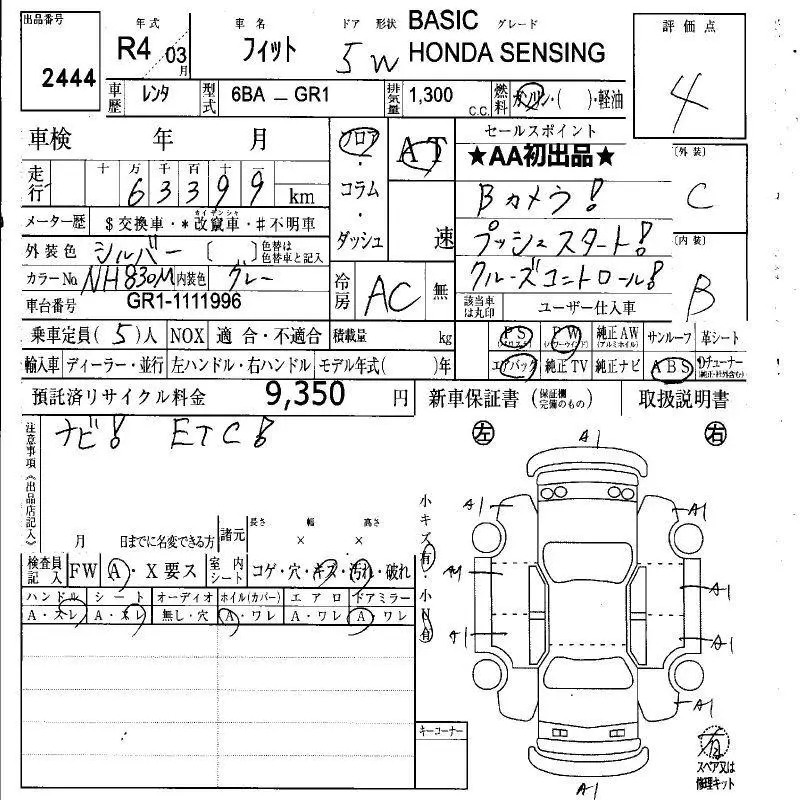 出品番号 2444
年式 R4 03月
車名 フィット
ドア 形状 5W
グレード BASIC HONDA SENSING
評価点 4
車歴 レンタ
型式 6BA － GR1
排気量 1,300 C.C.
燃料 ガソリン・( )・軽油
車検 年 月
フロア・コラム・ダッシュ
AT 速
セールスポイント
★AA初出品★
Bカメラ!
プッシュスタート!
クルーズコントロール!
〔外装〕 C
〔内装〕 B
走行 十 万 千 百 十 一
63399 km
メーター歴 $交換車・*改竄車・#不明車
カイザンシャ
外装色 シルバー 〔 〕 色替は色替車と記入
カラーNo NH830M 内装色 グレー
車台番号 GR1-1111996
冷房 AC 無
該当車は丸印 ユーザー仕入車
乗車定員(5)人 NOX 適合・不適合 積載量 kg
PS PW (パワーウインド) 純正AW (アルミホイル) サンルーフ 革シート
輸入車 ディーラー・並行 左ハンドル・右ハンドル モデル年式( )年
エアバック 純正TV 純正ナビ ABS
預託済リサイクル料金 9,350 円
新車保証書 (保証欄完備のもの) 取扱説明書
注意事項《出品店記入》
ナビ! ETC!
月 日までに名変できる方
諸元 長さ × 幅 × 高さ
小キズ有・小凹有
検査員記入 FW A・X要ス
室内シート コゲ・穴・キズ・汚れ・破れ
ハンドル シート オーディオ ホイル(カバー) エアロ ドアミラー
A・スレ A・スレ 無し・穴 A・ワレ A・ワレ A・ワレ
キーコーナー
左 右
A1
A1 A1
A1 A1
A1 A1
A1
A1
有
スペア又は修理キット